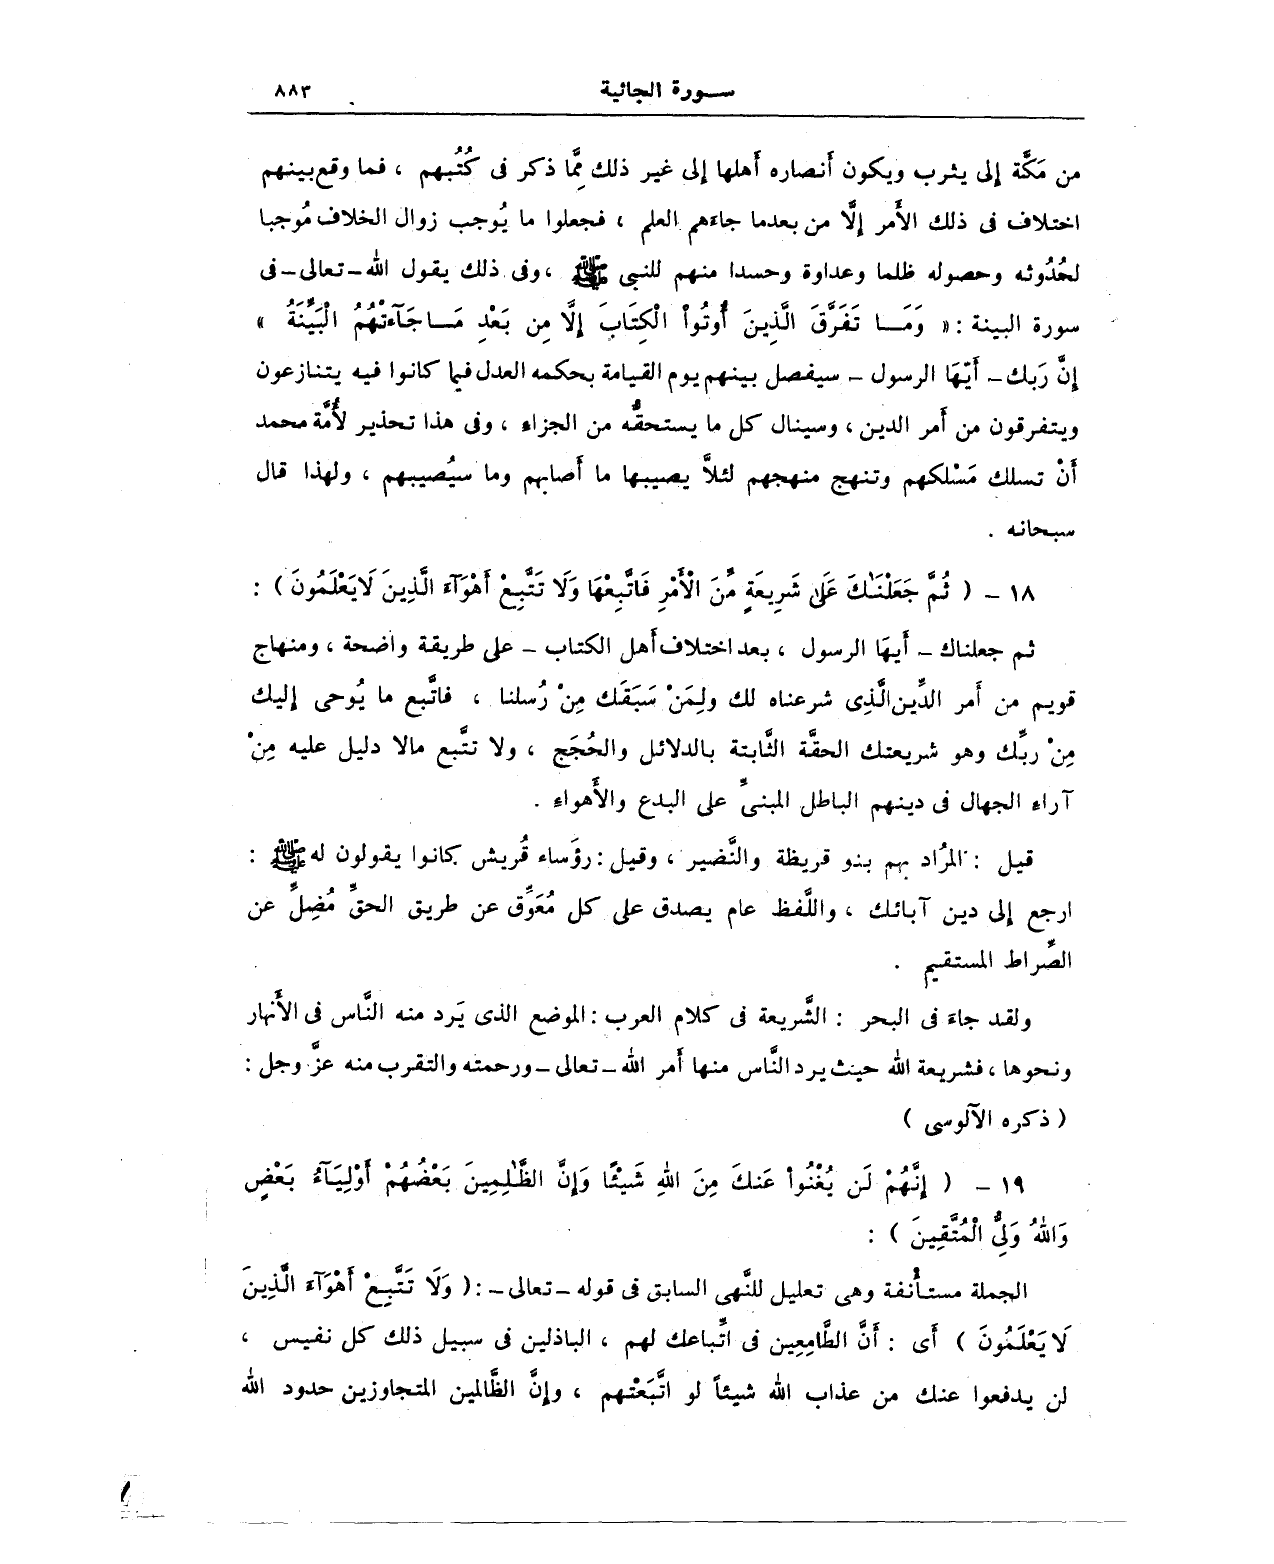 سورة الجاثية ٨٨٣
من مَكَّة إلى يثرب ويكون أَنصاره أَهلها إلى غير ذلك مِمَّا ذكر فى كُتُبهم ، فما وقع بينهم
اختلاف فى ذلك الأَمر إلَّا من بعدما جاءهم العلم ، فجعلوا ما يُوجب زوال الخلاف مُوجبا
لحُدُوثه وحصوله ظلما وعداوة وحسدا منهم للنبى ﷺ ، وفى ذلك يقول الله ـ تعالى ـ فى
سورة البينة : « وَمَا تَفَرَّقَ الَّذِينَ أُوتُواْ الْكِتَابَ إلَّا مِن بَعْدِ مَا جَآءَتْهُمُ الْبَيِّنَةُ »
إنَّ رَبك ـ أَيّها الرسول ـ سيفصل بينهم يوم القيامة بحكمه العدل فيما كانوا فيه يتنازعون
ويتفرقون من أَمر الدين ، وسينال كل ما يستحقُّه من الجزاء ، وفى هذا تحذير لأُمَّة محمد
أَنْ تسلك مَسْلكهم وتنهج منهجهم لئلاَّ يصيبها ما أَصابهم وما سيُصيبهم ، ولهذا قال
سبحانه .
١٨ ـ ( ثُمَّ جَعَلْنَٰكَ عَلَىٰ شَرِيعَةٍ مِّنَ الْأَمْرِ فَاتَّبِعْهَا وَلَا تَتَّبِعْ أَهْوَآءَ الَّذِينَ لَا يَعْلَمُونَ ) :
ثم جعلناك ـ أَيها الرسول ، بعد اختلاف أَهل الكتاب ـ على طريقة واضحة ، ومنهاج
قويم من أَمر الدِّين الَّذِى شرعناه لك ولِمَنْ سَبَقَك مِنْ رُسلنا ، فاتَّبع ما يُوحى إليك
مِنْ ربِّك وهو شريعتك الحقَّة الثَّابتة بالدلائل والحُجَج ، ولا تتَّبع مالا دليل عليه مِنْ
آراء الجهال فى دينهم الباطل المبنىِّ على البدع والأَهواء .
قيل : المُرَاد بهم بنو قريظة والنَّضير ، وقيل : رؤَساء قُريش كانوا يقولون له ﷺ :
ارجع إلى دين آبائك ، واللَّفظ عام يصدق على كل مُعَوِّق عن طريق الحقِّ مُضِلٍّ عن
الصِّراط المستقيم .
ولقد جاءَ فى البحر : الشَّريعة فى كلام العرب : الموضع الذى يَرد منه النَّاس فى الأَنهار
ونحوها ، فشريعة الله حيث يرد النَّاس منها أَمر الله ـ تعالى ـ ورحمته والتقرب منه عزَّ وجل :
( ذكره الآلوسى )
١٩ ـ ( إِنَّهُمْ لَن يُغْنُواْ عَنكَ مِنَ اللهِ شَيْئًا وَإِنَّ الظَّٰلِمِينَ بَعْضُهُمْ أَوْلِيَآءُ بَعْضٍ
وَاللهُ وَلِىُّ الْمُتَّقِينَ ) :
الجملة مستأْنفة وهى تعليل للنَّهى السابق فى قوله ـ تعالى ـ : ( وَلَا تَتَّبِعْ أَهْوَآءَ الَّذِينَ
لَا يَعْلَمُونَ ) أَى : أَنَّ الطَّامِعِين فى اتِّباعك لهم ، الباذلين فى سبيل ذلك كل نفيس ،
لن يدفعوا عنك من عذاب الله شيئاً لو اتَّبَعْتهم ، وإنَّ الظَّالمين المتجاوزين حدود الله